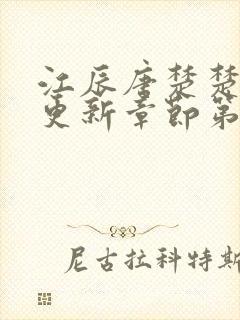 江辰唐楚楚
更新章节第
尼古拉科特斯